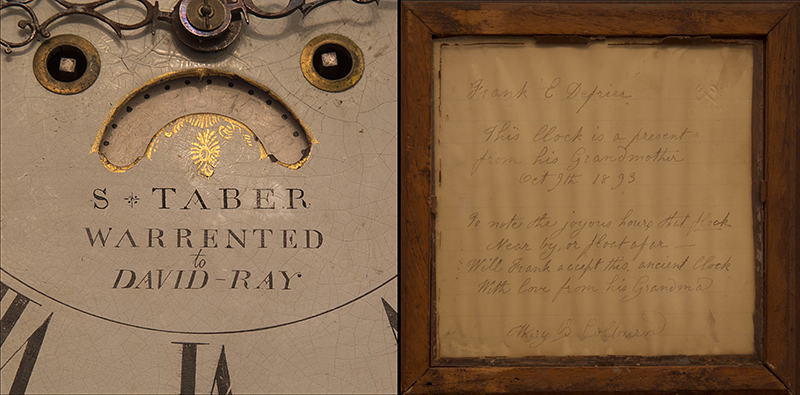 S TABER
WARRENTED
to
DAVID-RAY
Frank E Defries
This Clock is a present
from his Grandmother
Oct 9th 1893
To note the joyous hours that flock
Near by, or float afar —
Will Frank accept this, ancient Clock
With love from his Grandma
Mary B